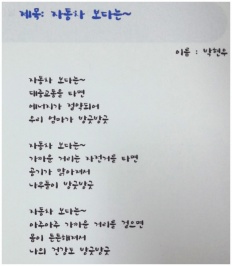 제목: 자동차 보다는~
이름 : 박현우
자동차 보다는~
대중교통을 타면
에너지가 절약되어
우리 엄마가 방긋방긋
자동차 보다는~
가까운 거리는 자전거를 타면
공기가 맑아져서
나무들이 방긋방긋
자동차 보다는~
아주아주 가까운 거리를 걸으면
몸이 튼튼해져서
나의 건강도 방긋방긋